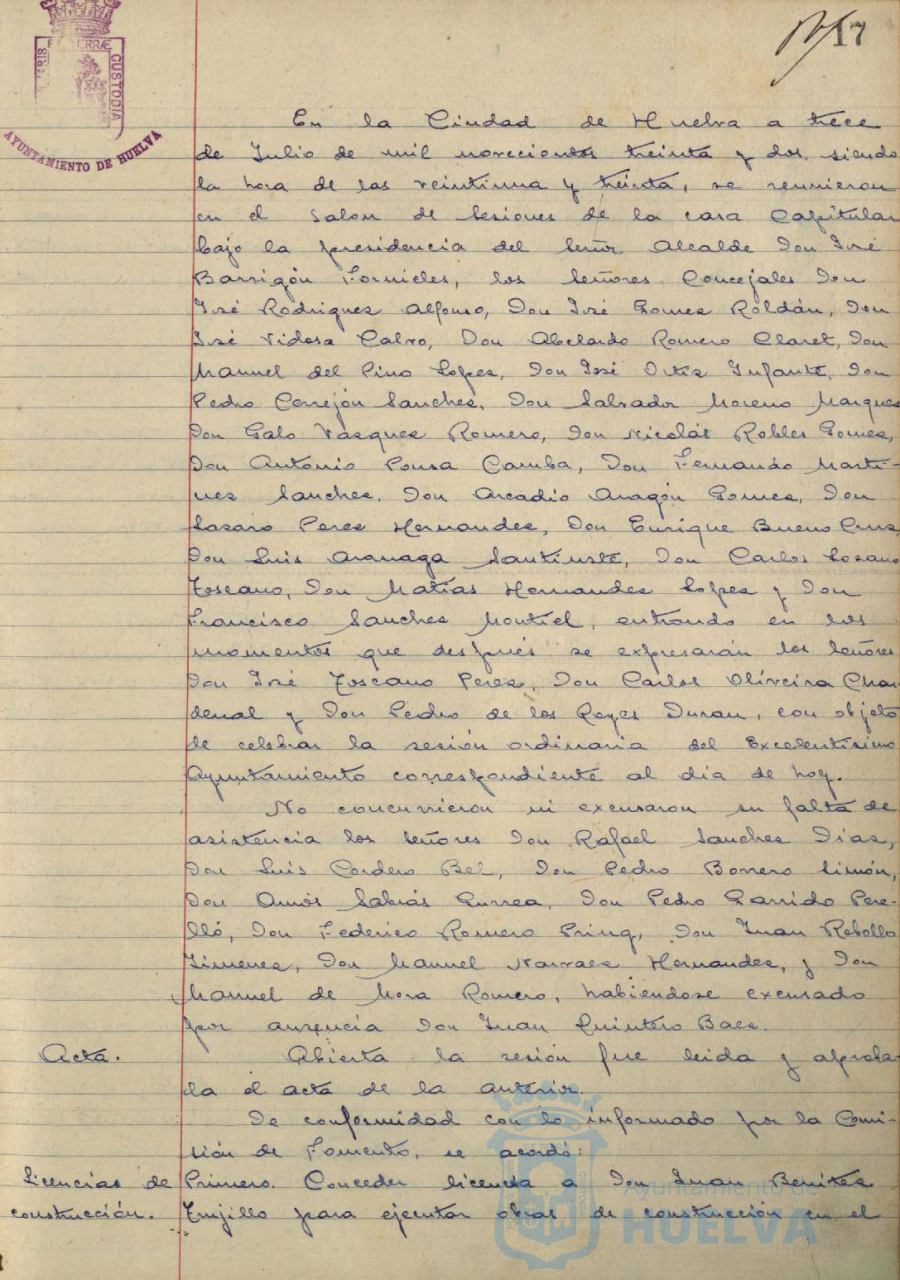 17
PORTUS MARIS ET TERRAE CUSTODIA
AYUNTAMIENTO DE HUELVA
En la Ciudad de Huelva a trece
de Julio de mil novecientos treinta y dos, siendo
la hora de las veintiuna y treinta, se reunieron
en el salon de sesiones de la casa Capitular
bajo la presidencia del señor Alcalde Don José
Barrigón Fornieles, los señores Concejales Don
José Rodriguez Alfonso, Don José Gomez Roldán, Don
José Vidosa Calvo, Don Abelardo Romero Claret, Don
Manuel del Pino Lopez, Don José Ortiz Infante, Don
Pedro Cerrejón Sanchez, Don Salvador Moreno Marquez
Don Galo Vazquez Romero, Don Nicolás Robles Gomez,
Don Antonio Pousa Camba, Don Fernando Marti-
nez Sanchez, Don Arcadio Aragón Gomez, Don
Lozaro Perez Hernandez, Don Enrique Bueno Cruz
Don Luis Aranaga Santiuste, Don Carlos Lozano
Toscano, Don Matías Hernandez Lopez y Don
Francisco Sanchez Montiel, entrando en los
momentos que después se expresarán los señores
Don José Toscano Perez, Don Carlos Oliveira Char-
denal y Don Pedro de los Reyes Duran, con objeto
de celebrar la sesión ordinaria del Excelentísimo
Ayuntamiento correspondiente al dia de hoy.
No concurrieron ni excusaron su falta de
asistencia los señores Don Rafael Sanchez Diaz,
Don Luis Cordero Bel, Don Pedro Borrero Limón,
Don Amós Sabrás Gurrea, Don Pedro Garrido Pere-
lló, Don Federico Romero Pring, Don Juan Rebollo
Jimenez, Don Manuel Narvaez Hernandez, y Don
Manuel de Mora Romero, habiendose excusado
por ausencia Don Juan Quintero Baez.
Acta. Abierta la sesión fue leida y aproba-
da el acta de la anterior.
De conformidad con lo informado por la Comi-
sión de Fomento, se acordó:
Licencias de Primero. Conceder licencia a Don Juan Benitez
construcción. Trujillo para ejecutar obras de construcción en el
Ayuntamiento de
HUELVA